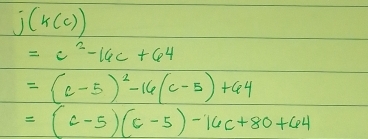 j(k(c))
= c²-16c +64
= (c-5)²-16(c-5)+64
= (c-5)(c-5)-16c+80+64